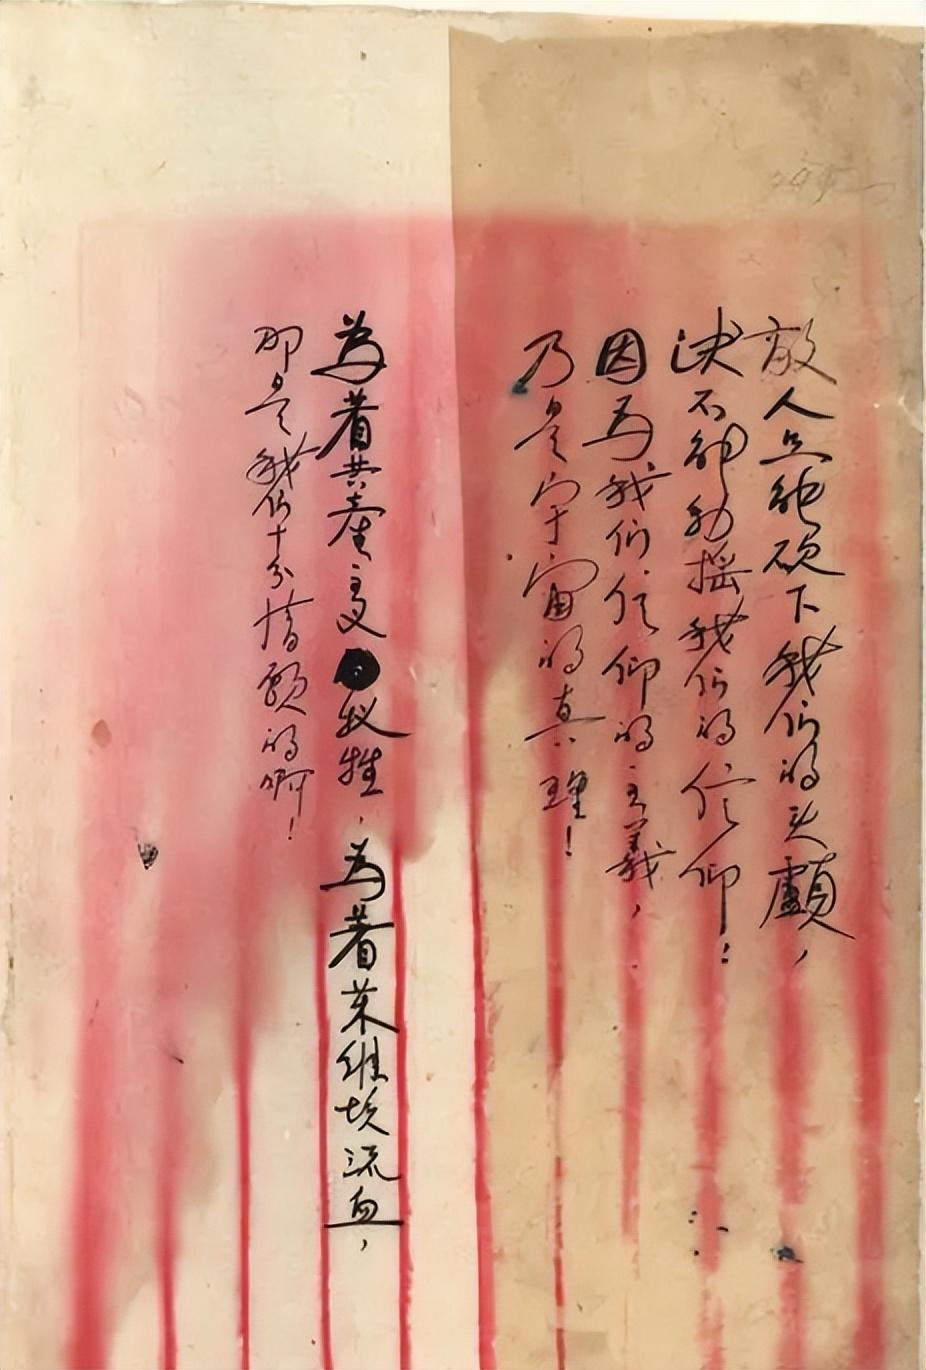 敵人只能砍下我们的头顱，
决不能动摇我们的信仰！
因為我们信仰的主義，
乃是宇宙的真理！
為着共産主义牺牲，為着苏维埃流血，
那是我们十分情願的啊！